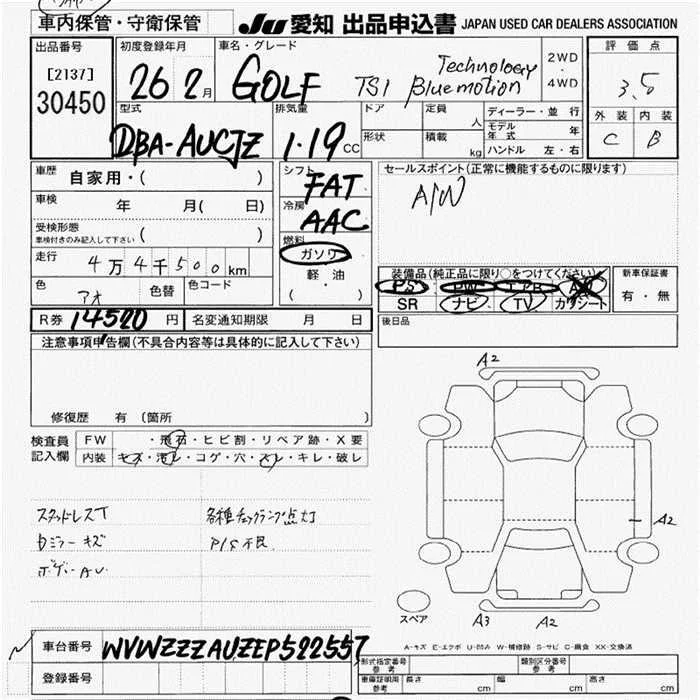 車内保管・守衛保管
JU 愛知 出品申込書 JAPAN USED CAR DEALERS ASSOCIATION
出品番号
[2137]
30450
初度登録年月
26 2月
車名・グレード
GOLF TSI Technology Bluemotion
2WD
・
4WD
評価点
3.5
外装 内装
C B
型式
DBA-AUCJZ
排気量
1.19cc
ドア
形状
定員 人
積載 kg
ディーラー・並行
モデル年式 年
ハンドル 左・右
車歴
自家用・( )
車検
年 月( 日)
受検形態
車検付きのみ記入して下さい ( )
走行
4万4千500km
色
アオ
色替
色コード
シフト
FAT
冷房
AAC
燃料
ガソリン
軽・油
( )
セールスポイント(正常に機能するものに限ります)
A/W
装備品(純正品に限り○をつけてください)
PS PW エアB
SR ナビ TV カワシート
新車保証書
有・無
後日品
R券 14520円
名変通知期限 月 日
注意事項申告欄(不具合内容等は具体的に記入して下さい)
修復歴 有(箇所
検査員
記入欄
FW ・飛石・ヒビ割・リペア跡・X要
内装 キズ・汚レ・コゲ・穴・スレ・キレ・破レ
スタッドレスT
各種チェックランプ点灯
ミラーキズ
P/S不良
A2
A2
スペア
A3
A2
A-キズ E-エクボ U-凹み W-補修跡 S-サビ C-腐食 XX-交換済
車台番号
WVWZZZAUZEP522557
登録番号
形式指定番号
参考
類別区分番号
参考
車庫証明用
参考
長さ cm
幅 cm
高さ cm